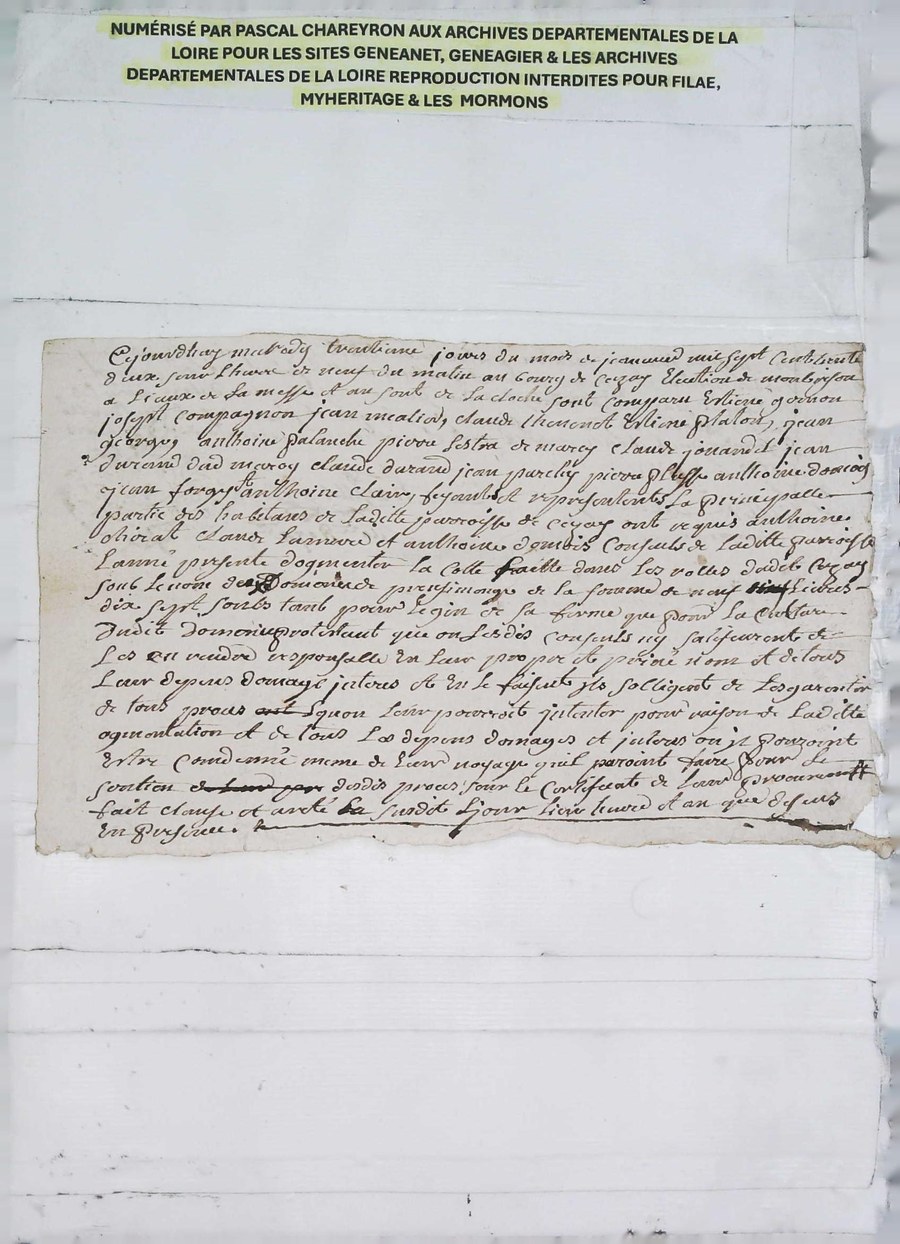 NUMÉRISÉ PAR PASCAL CHAREYRON AUX ARCHIVES DEPARTEMENTALES DE LA
LOIRE POUR LES SITES GENEANET, GENEAGIER & LES ARCHIVES
DEPARTEMENTALES DE LA LOIRE REPRODUCTION INTERDITES POUR FILAE,
MYHERITAGE & LES MORMONS
Cejourdhuy mecredy trentieme jours du mois de janvier mil sept cent trente
deux sour lheure de neuf du matin au bourg de Cezay Election de montbrison
a lissue de La messe et au sont de La cloche sont comparu Estiene
joseph Compagnon jean claude Estiene platon, jean
georges, anthoine palanche pierre de marcy claude jouanel jean
durand dud marcy claude durand jean pierre anthoine
jean forge anthoine clair, fezants et representents La principalle
partie des habitans de Laditte parroisse de Cezay ont requis anthoine
claude et anthoine Consuls de Laditte parroisse
Lanné presente dogmenter la Cotte faitte dans Les rolles dudit Cezay
sous le nom du Domaine de de la somme de neuf Livres
dix sept sours tant pour de sa ferme que pour La Culture
dudit domaine protestant que ou Lesdis Consuls ny de
Les en rendre responsable En Leur propre et privé nom et de tous
Leur depens domage interes et En le faisent ils solligent de Les garentir
de tous proces quon Leur pouroit intenter pour raison de Laditte
ogmentation et de tous Les depens domages et interes ou ils pouroint
Estre Condemné meme de Leur voyage quil faire pour le
soutien desdis proces, sour le Certificat de Leur procureur
fait clause et areté La susdit jour lieu heure et an que desus
En presence.